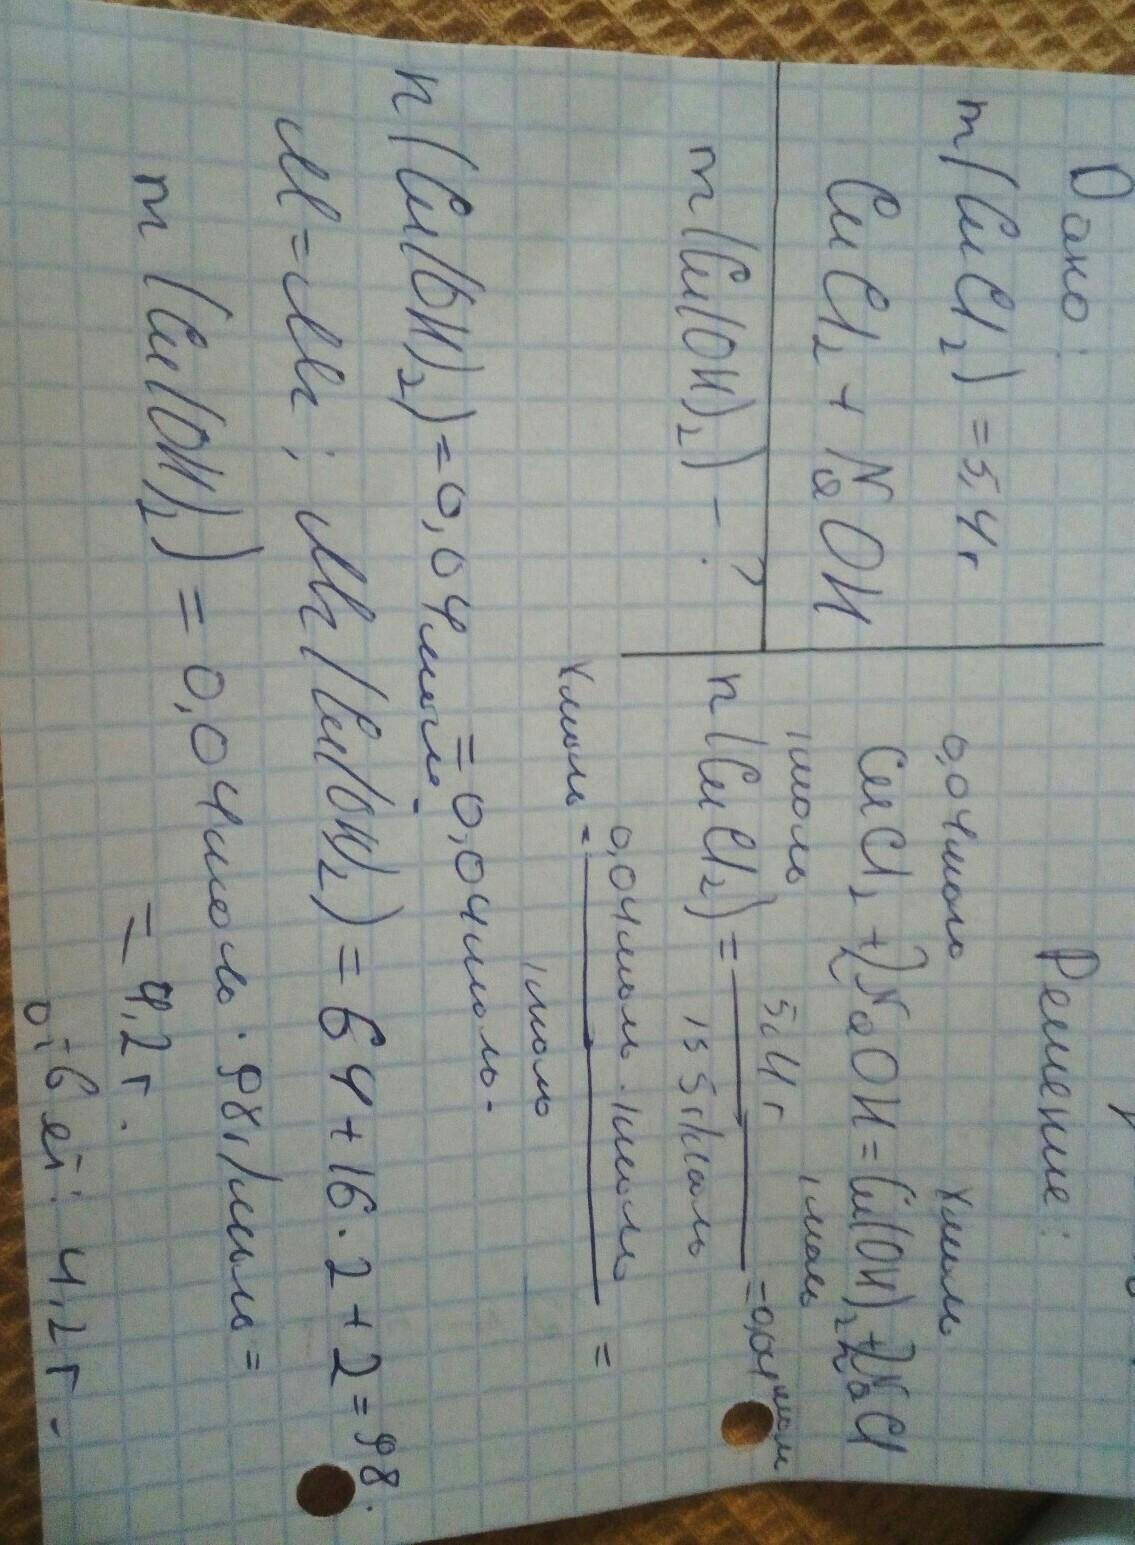 Дано:
m(CuCl₂) = 5,4г
CuCl₂ + NaOH
m(Cu(OH)₂) - ?
Решение:
0,04моль Xмоль
CuCl₂ + 2NaOH = Cu(OH)₂ + 2NaCl
1моль 1моль
n(CuCl₂) = 5,4г / 135г/моль = 0,04моль
Xмоль = 0,04моль · 1моль / 1моль =
= 0,04моль.
n(Cu(OH)₂) = 0,04моль.
M = Mr; Mr(Cu(OH)₂) = 64 + 16 · 2 + 2 = 98.
m(Cu(OH)₂) = 0,04моль · 98г/моль =
= 4,2г.
Ответ: 4,2г.